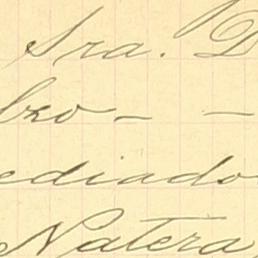 Sra. D
bro — —
ediado
Natera